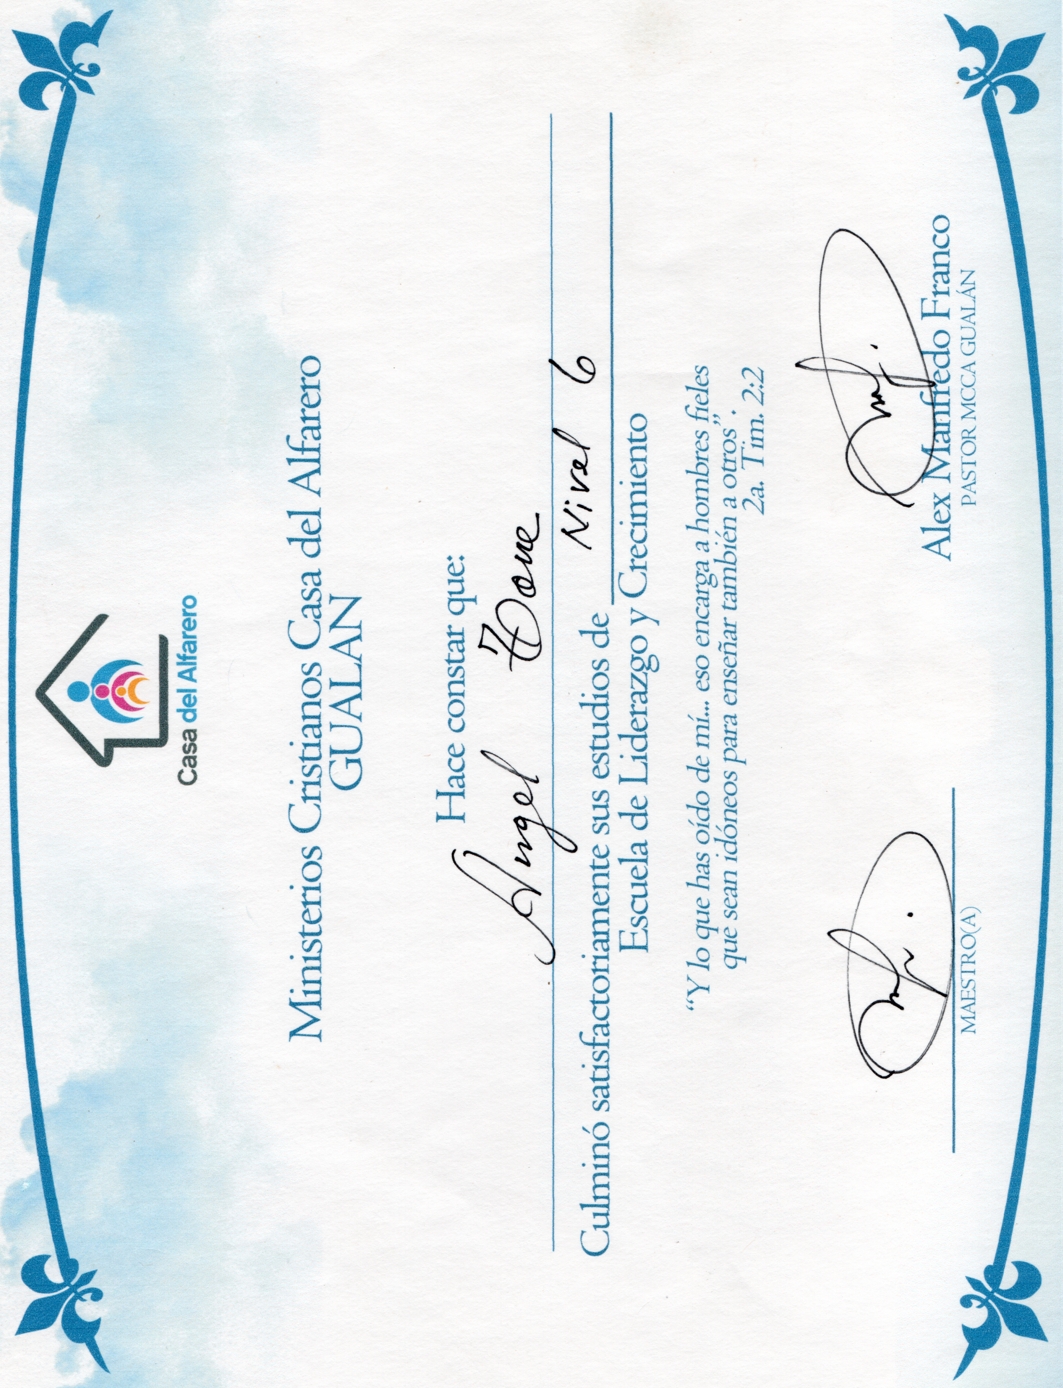 Casa del Alfarero
Ministerios Cristianos Casa del Alfarero
GUALÁN
Hace constar que:
Angel
Culminó satisfactoriamente sus estudios de Nivel 6
Escuela de Liderazgo y Crecimiento
“Y lo que has oído de mí... eso encarga a hombres fieles
que sean idóneos para enseñar también a otros”.
2a. Tim. 2:2
MAESTRO(A)
Alex Manfredo Franco
PASTOR MCCA GUALÁN